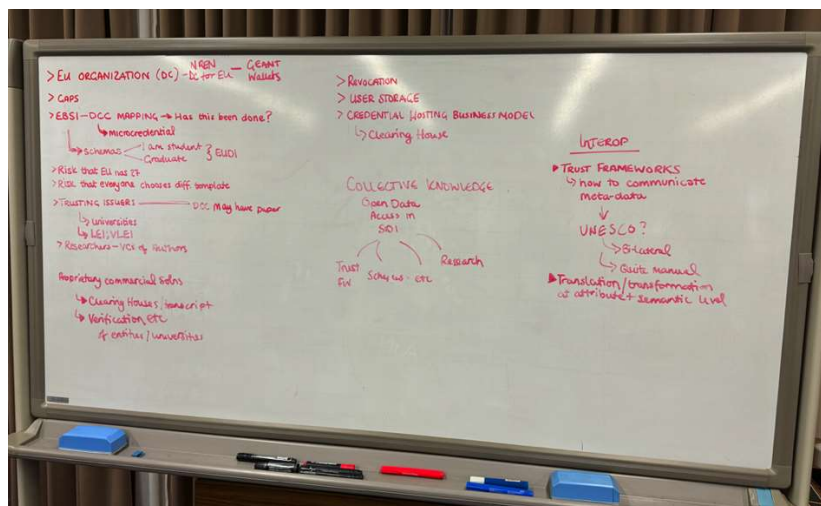 > EU ORGANIZATION (DC) - NREN DC for EU - GEANT Wallets
> CAPS
> EBSI-DCC MAPPING → Has this been done?
↳ microcredential
↳ schemas
I am student
Graduate } EUDI
> Risk that EU has 27
> Risk that everyone chooses diff. template
> TRUSTING ISSUERS — DCC May have paper
↳ universities
↳ LEI; VLEI
> Researchers - VCs of Authors
Proprietary commercial Solns
↳ Clearing Houses/transcript
↳ Verification, etc
of entities/universities
> REVOCATION
> USER STORAGE
> CREDENTIAL HOSTING BUSINESS MODEL
↳ Clearing House
COLLECTIVE KNOWLEDGE
Open Data
Access in
Trust FW
etc
Research
INTEROP
▶ TRUST FRAMEWORKS
↳ how to communicate
meta-data
↓
UNESCO?
↳ Bilateral
↳ Quite manual
▶ Translation/transformation
at attribute + semantic level